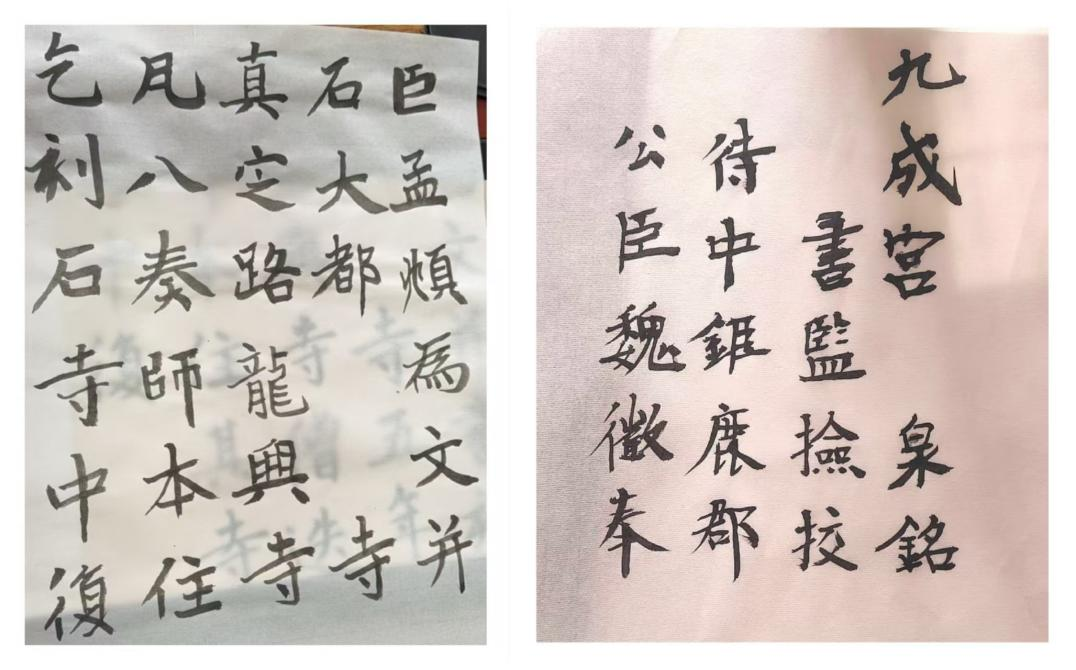 臣孟頫為文并
石大都寺
真定路龍興寺
凡八奏師本住
乞刻石寺中復
九成宮泉銘
書監撿挍
侍中鉅鹿郡
公臣魏徵奉